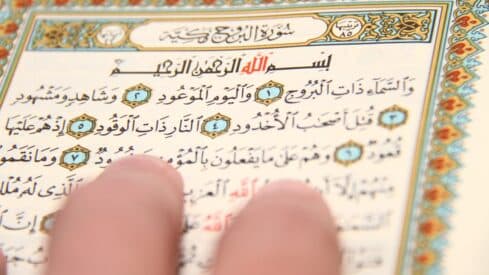 سُورَةُ الْبُرُوجِ مَكِّيَّة
بِسْمِ اللَّهِ الرَّحْمَٰنِ الرَّحِيمِ
وَالسَّمَاءِ ذَاتِ الْبُرُوجِ ١ وَالْيَوْمِ الْمَوْعُودِ ٢ وَشَاهِدٍ وَمَشْهُودٍ
٣ قُتِلَ أَصْحَابُ الْأُخْدُودِ ٤ النَّارِ ذَاتِ الْوَقُودِ ٥ إِذْ هُمْ عَلَيْهَا
قُعُودٌ ٦ وَهُمْ عَلَىٰ مَا يَفْعَلُونَ بِالْمُؤْمِنِينَ شُهُودٌ ٧ وَمَا نَقَمُوا
مِنْهُمْ إِلَّا أَنْ اللَّهِ الْعَزِيزِ الَّذِي لَهُ مُلْكُ
اللَّهُ عَلَىٰ إِنَّ